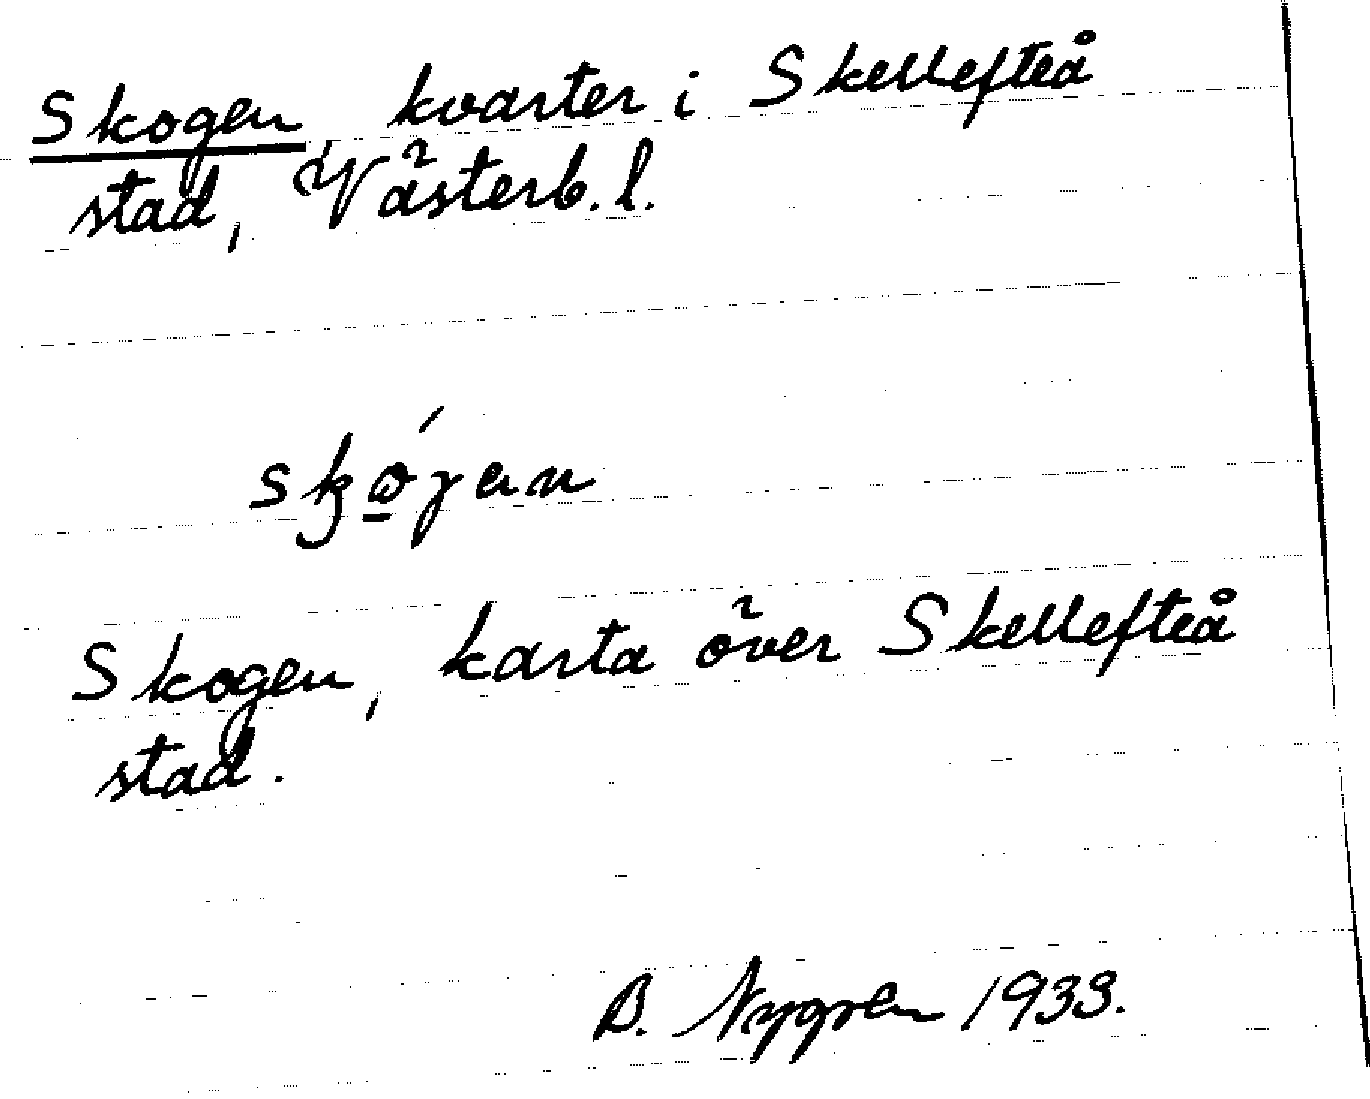 Skogen kvarter i Skellefteå
stad, Västerb. l.
Skogen, karta över Skellefteå
stad.
B. Nygren 1933.